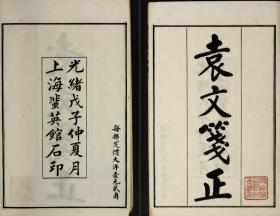 袁文箋正
光緒戊子仲夏月
上海蜚英館石印
每部定價大洋壹元貳角